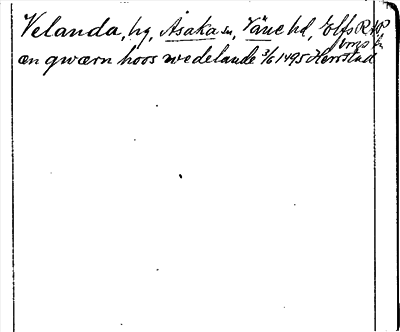 Velanda, hg, Åsaka sn, Väne hd, Elfsborgs län
æn qwærn hoos wedelande 3/6 1495 Herrstad